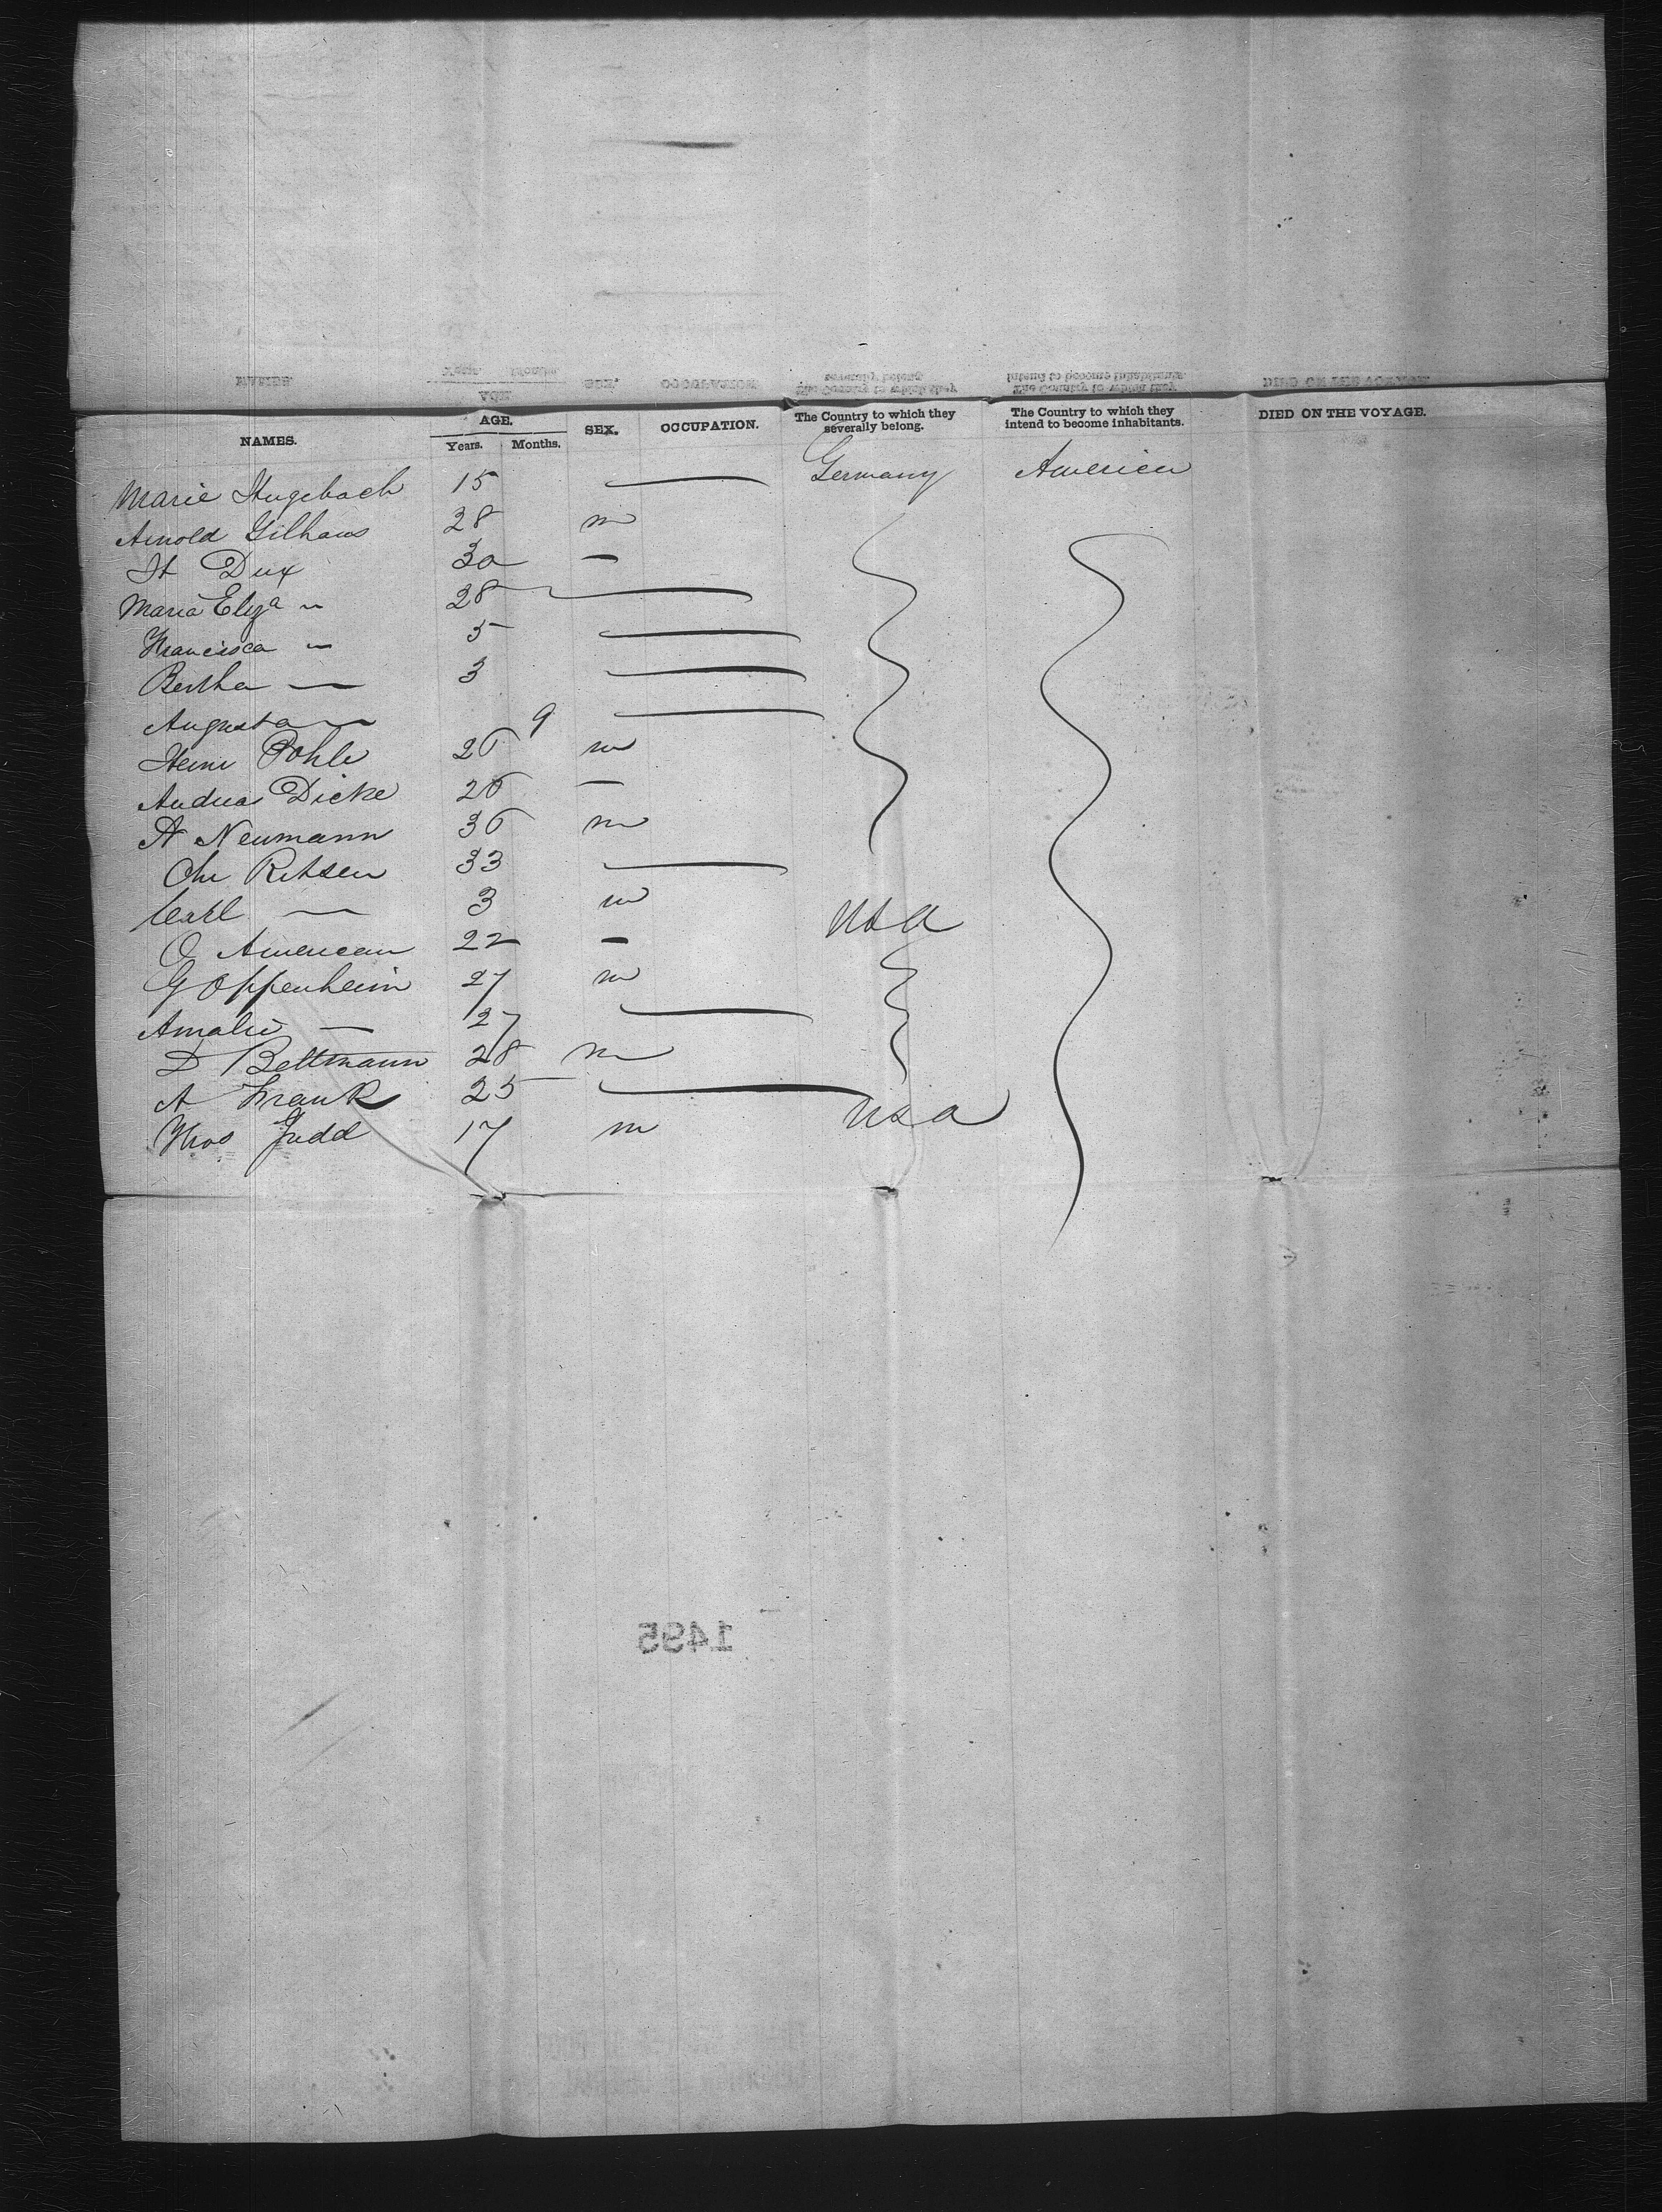 NAMES. AGE. Years. Months. SEX. OCCUPATION. The Country to which they severally belong. The Country to which they intend to become inhabitants. DIED ON THE VOYAGE.
Marie Hugebach 15 — Germany America
Arnold Gilhaus 28 m
Dux 30 —
Maria Eliza " 28 —
Francisca " 5 —
Bertha — 3 —
Augusta — 9 —
Heinr Pohle 26 m
Andreas Dicke 26 —
A Neumann 36 m
Chr 33 —
Carl — 3 m
O American 22 — USA
G Oppenheim 27 m
Amalie — 27 —
D Bettmann 28 m
A Frank 25 —
Thos Judd 17 m USA
1495